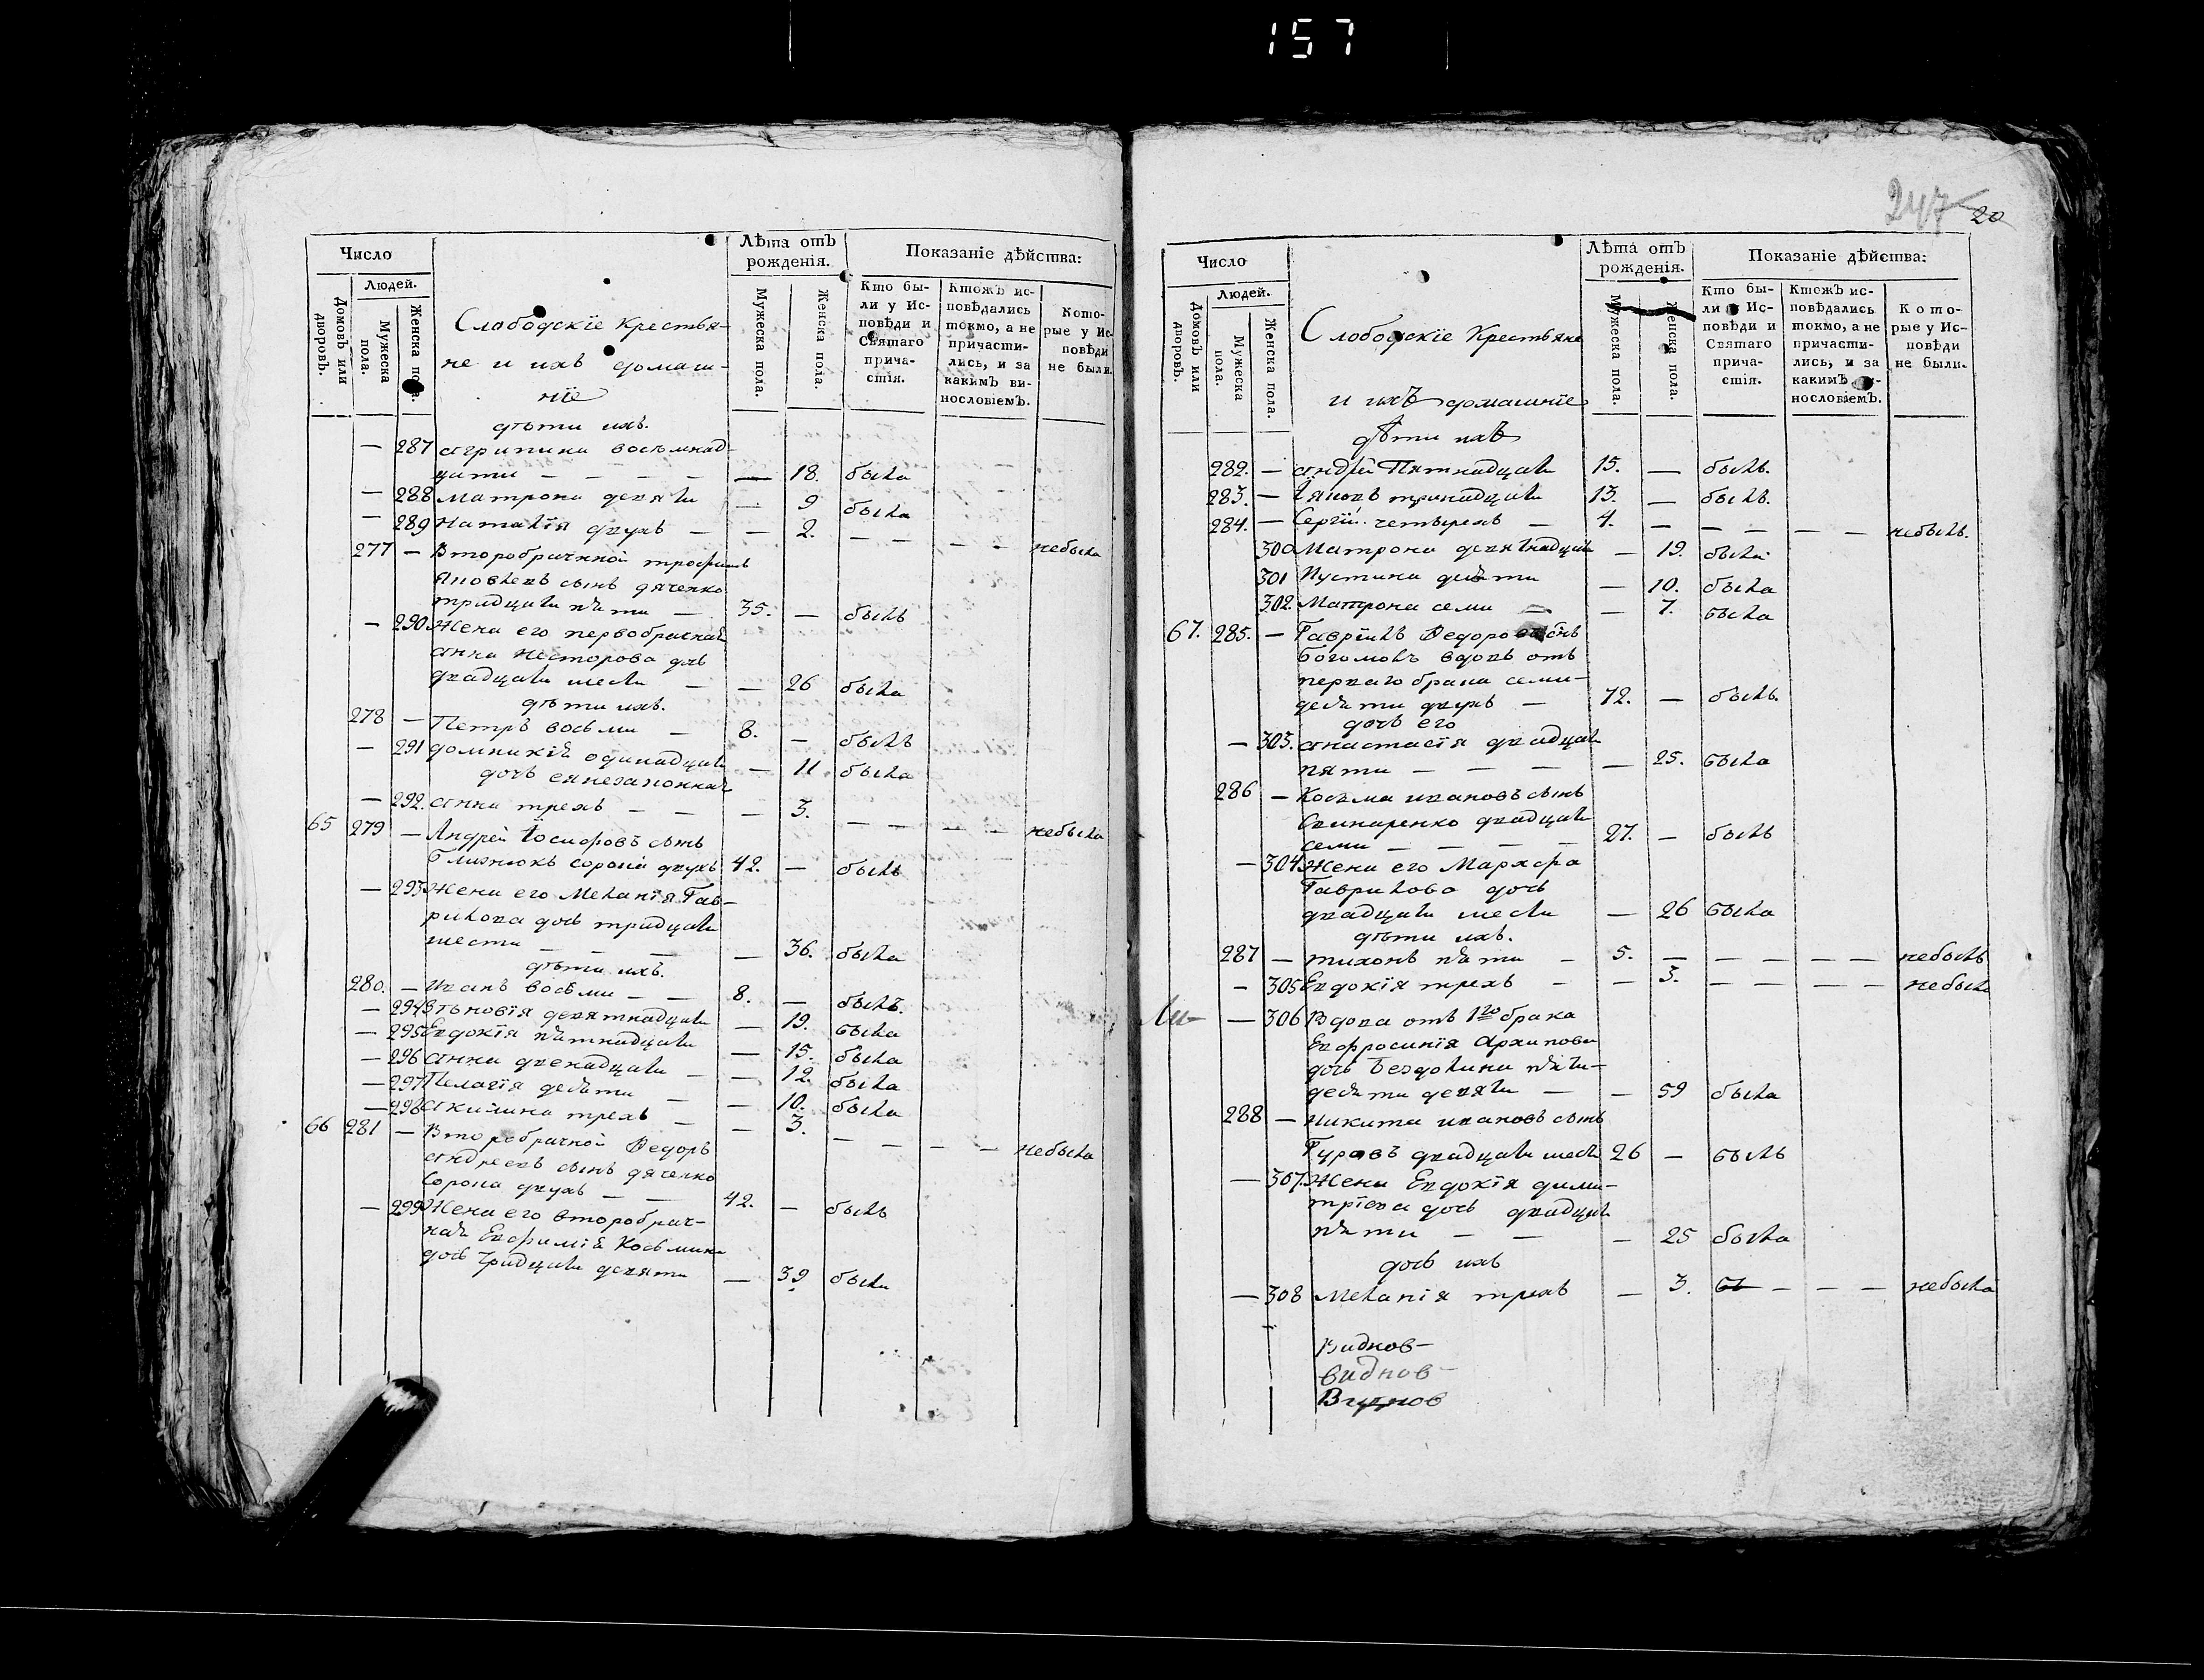 157
Число
Людей.
Домовъ или дворовъ.
Мужеска пола.
Женска пола.
Слободскіе Крестья-
не и ихъ домаш-
ніе
Лѣта отъ рожденія.
Мужеска пола.
Женска пола.
Показаніе дѣйства:
Кто бы-
ли у Ис-
повѣди и
Святаго
прича-
стія.
Ктожъ ис-
повѣдались
токмо, а не
причасти-
лись, и за
какимъ ви-
нословіемъ.
Кото-
рые у Ис-
повѣди
не были.
дѣти ихъ.
— 287 агрипина восѣмнад-
цати — — — — — 18. была
— 288 Матрона девяти — 9 была
— 289 Наталія двухъ — — 2. — — — — небыла
277 — Второбрачной трофимъ
Яковлевъ сынъ дяченко
тридцати пяти — 35. — былъ
— 290 Жена его первобрачная
анна Несторова дчь
двадцати шести — — 26 была
дѣти ихъ.
278 — Петръ восьми — 8. — былъ
— 291 домникія одинадцати — 11 была
дочь ея незаконная
— 292. анна трехъ — — — 3. — — — — небыла
65 279 — Андрей Іосифовъ сынъ
Близнюкъ сорока двухъ 42. — былъ
— 293 Жена его Меланія Гав-
рилова дочь тридцати
шести — — — — 36. была
дѣти ихъ.
280. — иванъ восьми — — 8. — былъ.
— 294 Зѣновія девятнадцати — 19. была
— 295 Евдокія пятнадцати — 15. была
— 296 анна двенадцати — — 12. была
— 297 Пелагія десяти — — 10. была
— 298 акилина трехъ — — 3. — — — — небыла
66 281 — Второбрачной Федоръ
андреевъ сынъ дяченко
Сорока двухъ — — 42. — былъ
— 299 Жена его второбрач-
ная Евфимія Косьмина
дочь тридцати девяти — 39 была
247 20
Число
Людей.
Домовъ или дворовъ.
Мужеска пола.
Женска пола.
Слободскіе Крестьяне
и ихъ домашніе
Лѣта отъ рожденія.
Мужеска пола.
Женска пола.
Показаніе дѣйства:
Кто бы-
ли у Ис-
повѣди и
Святаго
прича-
стія.
Ктожъ ис-
повѣдались
токмо, а не
причасти-
лись, и за
какимъ ви-
нословіемъ.
Кото-
рые у Ис-
повѣди
не были.
дѣти ихъ
282. — андрей Пятнадцати 15. — былъ.
283. — Іяковъ тринадцати 13. — былъ.
284. — Сергій четырехъ — 4. — — — — небылъ.
300 Матрона девятнадцати — 19. была
301 Пустина десяти — 10. была
302. Матрона семи — — 7. была
67. 285. — Гавріилъ Федоровъ сынъ
Богомолъ вдовъ отъ
перваго брака семи-
десяти двухъ — 72. — былъ.
дочь его
— 303. анастасія двадцати
пяти — — — — 25. была
286 — Косьма ивановъ сынъ
Свинаренко двадцати
семи — — — 27. — былъ
— 304 Жена его Марфа
Гаврилова дочь
двадцати шести — 26 была
дѣти ихъ.
287 — тихонъ пяти — 5. — — — — — небылъ
— 305 Евдокія трехъ — — 3. — — — — небыла
— 306 Вдова отъ 1го брака
Евфросинія Архипова
дочь Бездолина пяти-
десяти девяти — — 59 была
288 — никита ивановъ сынъ
Гуровъ двадцати шести 26 — былъ
— 307. Жена Евдокія дими-
тріева дочь двадцати
пяти — — — 25 была
дочь ихъ
— 308 Меланія трехъ — 3. — — — небыла
Виднов-
виднов-